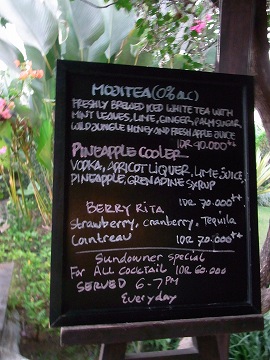 MOJITEA (0% alc)
FRESHLY BREWED ICED WHITE TEA WITH
MINT LEAVES, LIME, GINGER, PALM SUGAR,
WILD JUNGLE HONEY AND FRESH APPLE JUICE
IDR 40.000++
PINEAPPLE COOLER
VODKA, APRICOT LIQUER, LIME JUICE,
PINEAPPLE, GRENADINE SYRUP
IDR 70.000++
BERRY RITA
Strawberry, cranberry, Tequila
Cointreau IDR 70.000++
Sundowner Special
For ALL COCKTAIL IDR 60.000
SERVED 6-7 PM
Everyday